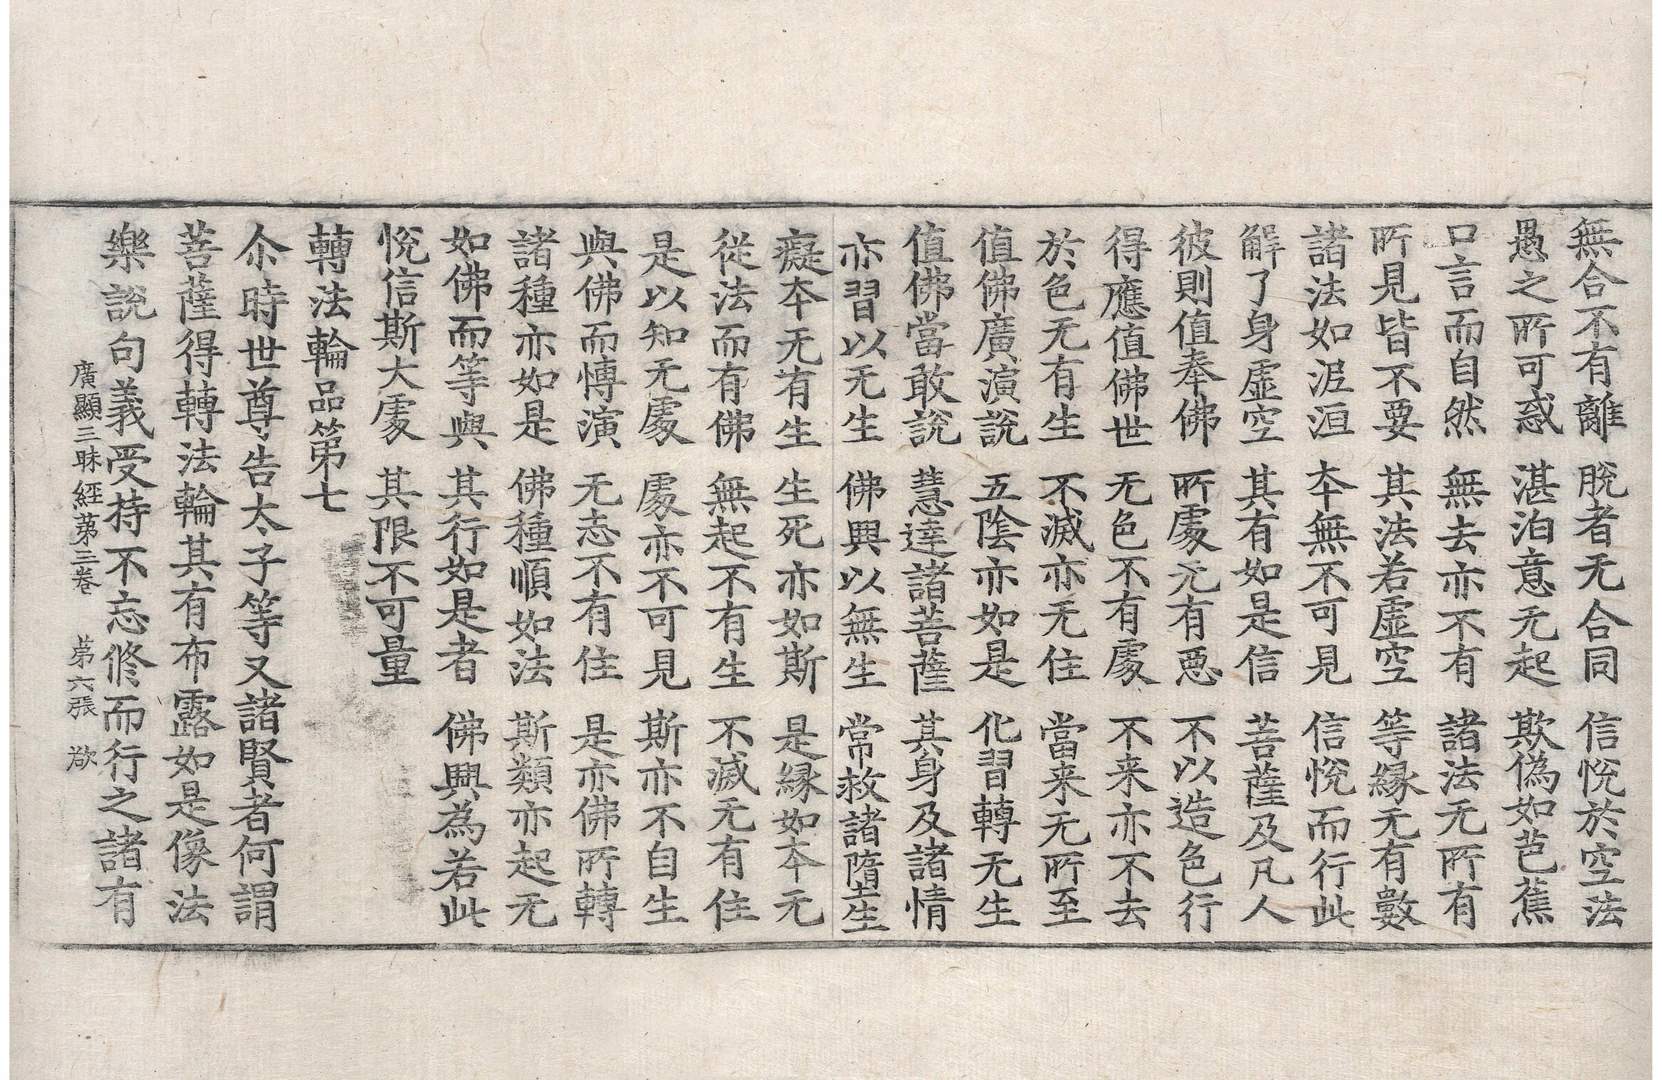 無合不有離　脫者无合同　信悅於空法
愚之所可惑　湛泊意无起　欺偽如芭蕉
口言而自然　無去亦不有　諸法无所有
所見皆不要　其法若虛空　等緣无有數
諸法如泥洹　本無不可見　信悅而行此
解了身虛空　其有如是信　菩薩及凡人
彼則值奉佛　所處无有惡　不以造色行
得應值佛世　无色不有處　不来亦不去
於色无有生　不滅亦无住　當来无所至
值佛廣演說　五陰亦如是　化習轉无生
值佛當敢說　慧達諸菩薩　其身及諸情
亦習以无生　佛興以無生　常救諸墮生
癡本无有生　生死亦如斯　是緣如本无
從法而有佛　無起不有生　不滅无有住
是以知无處　處亦不可見　斯亦不自生
與佛而博演　无志不有住　是亦佛所轉
諸種亦如是　佛種順如法　斯類亦起无
如佛而等與　其行如是者　佛興為若此
悅信斯大處　其限不可量
轉法輪品第七
尒時世尊告太子等又諸賢者何謂
菩薩得轉法輪其有布露如是像法
樂說句義受持不忘修而行之諸有
廣顯三昧經第三卷　第六張　欲